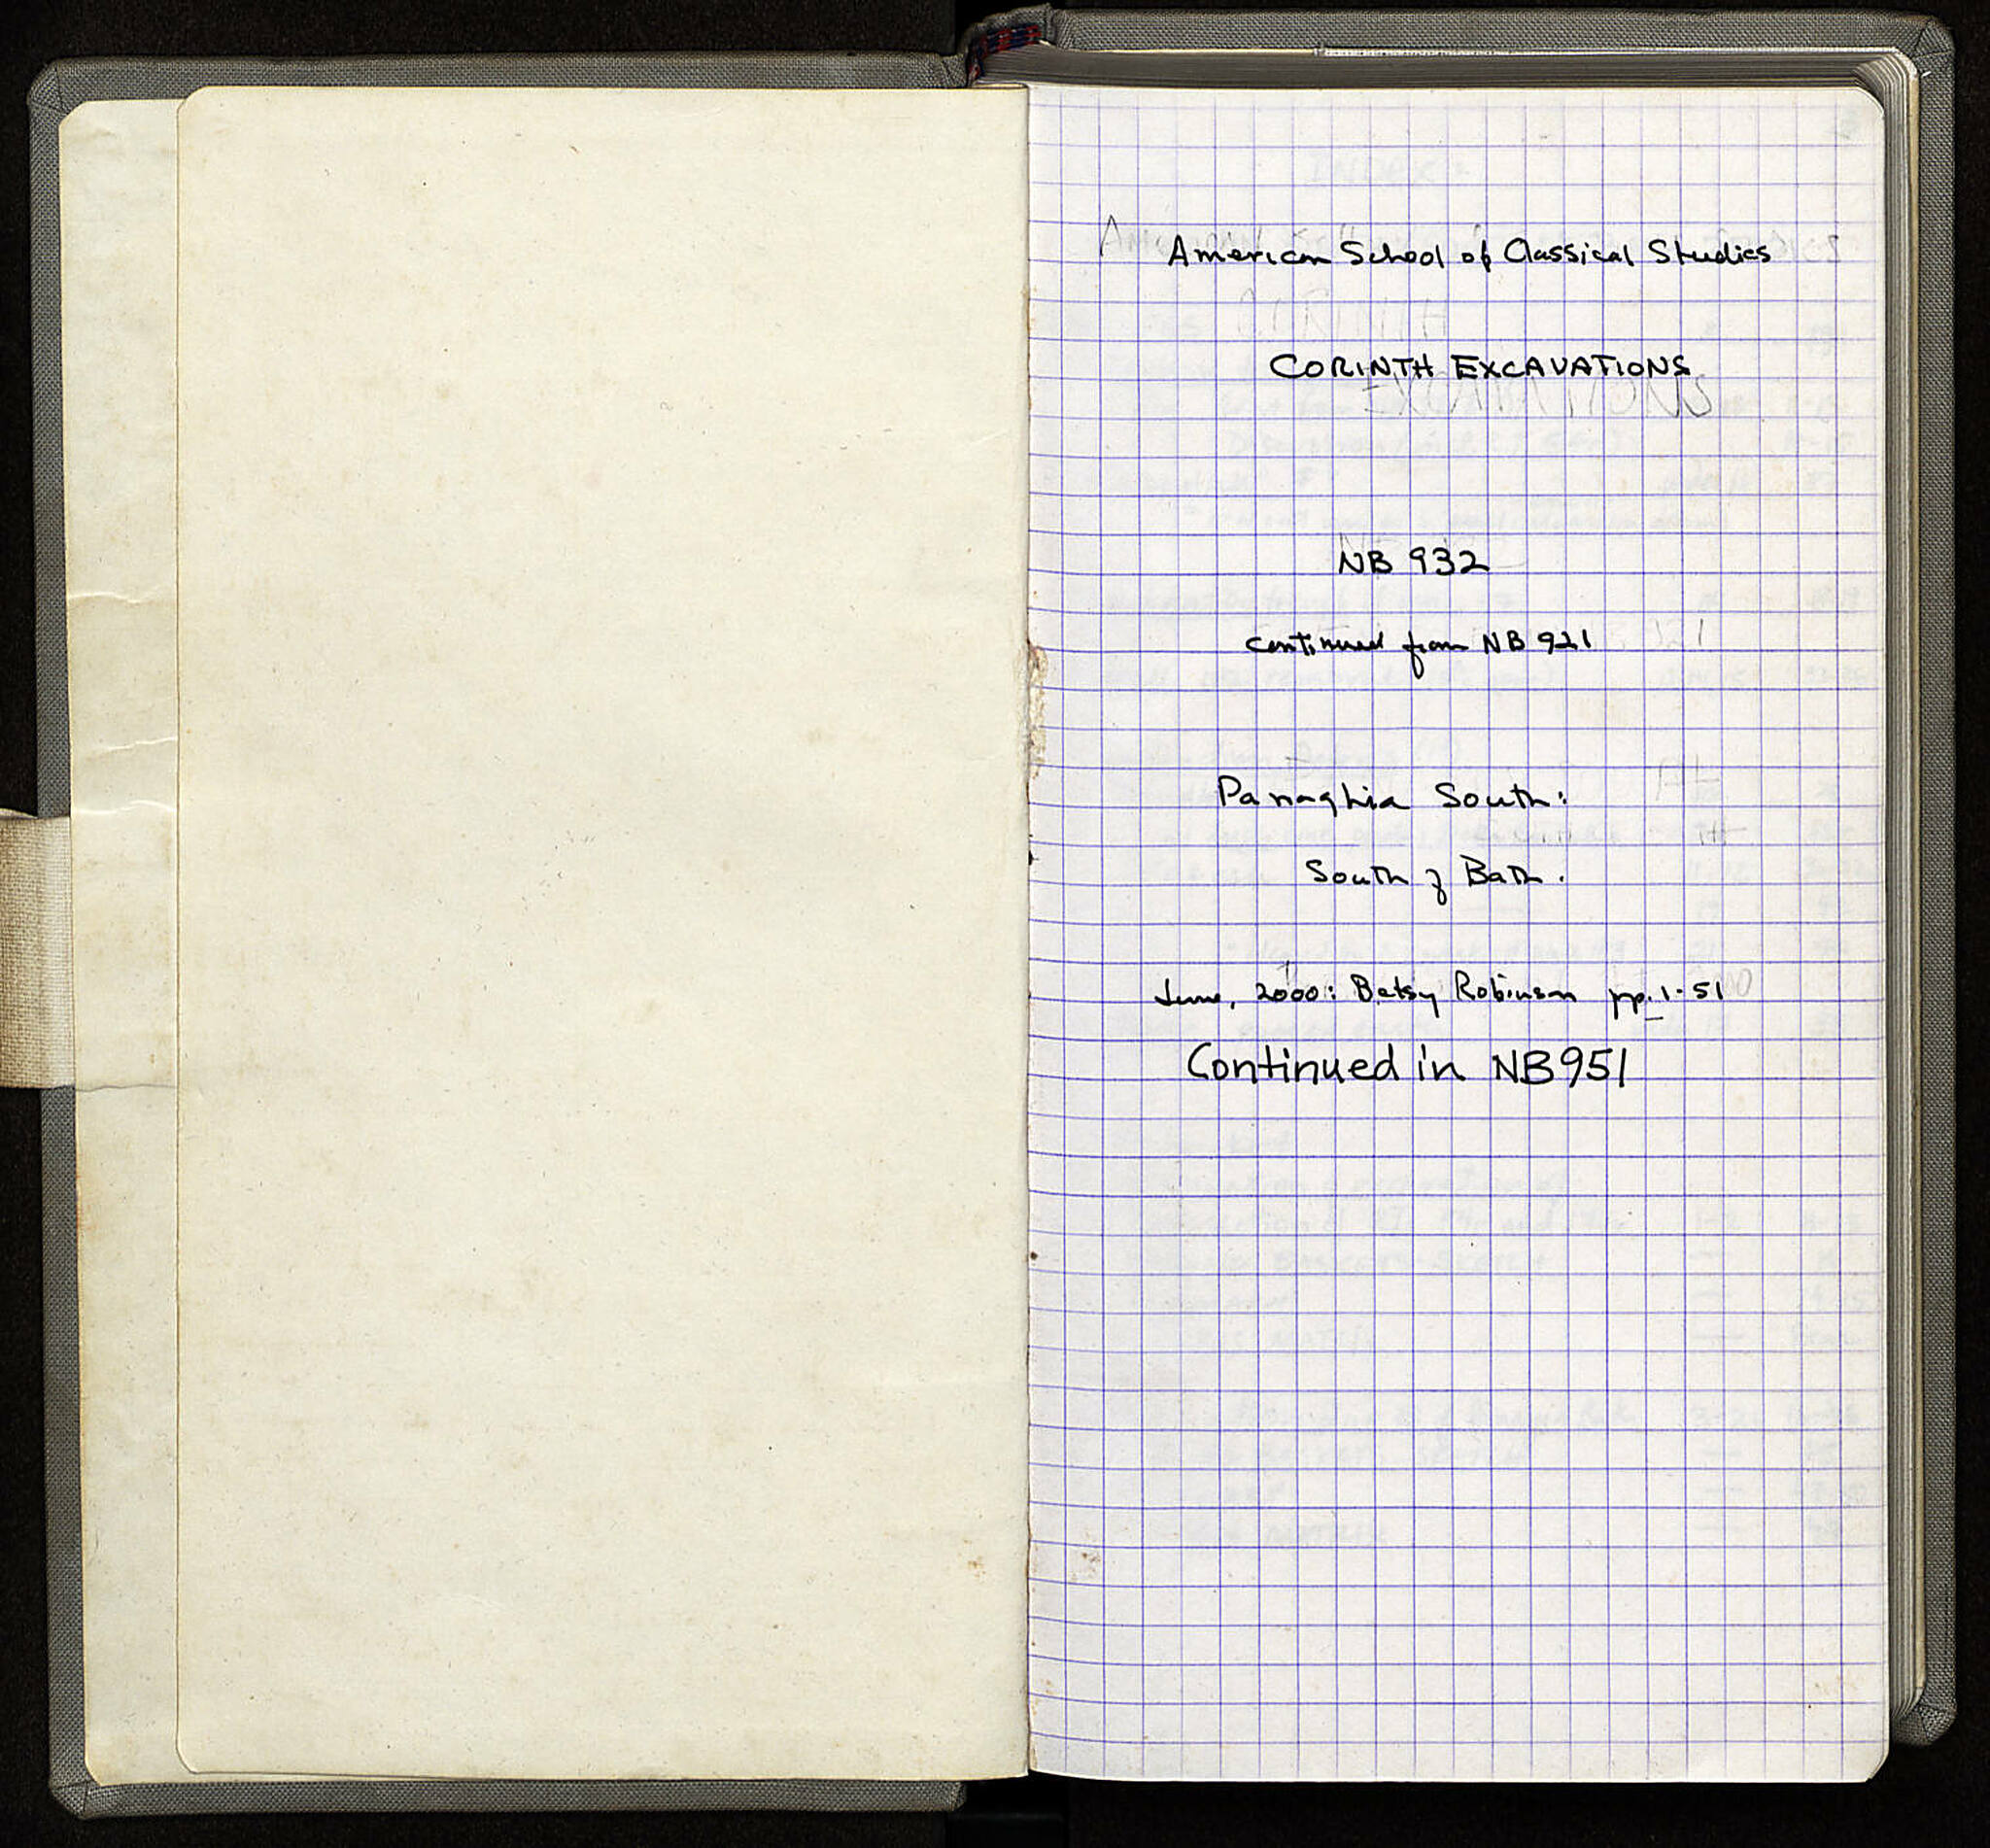 American School of Classical Studies
CORINTH EXCAVATIONS
NB 932
Continued from NB 921
Panaghia South:
South of Bath.
June, 2000: Betsy Robinson pp. 1-51
Continued in NB951